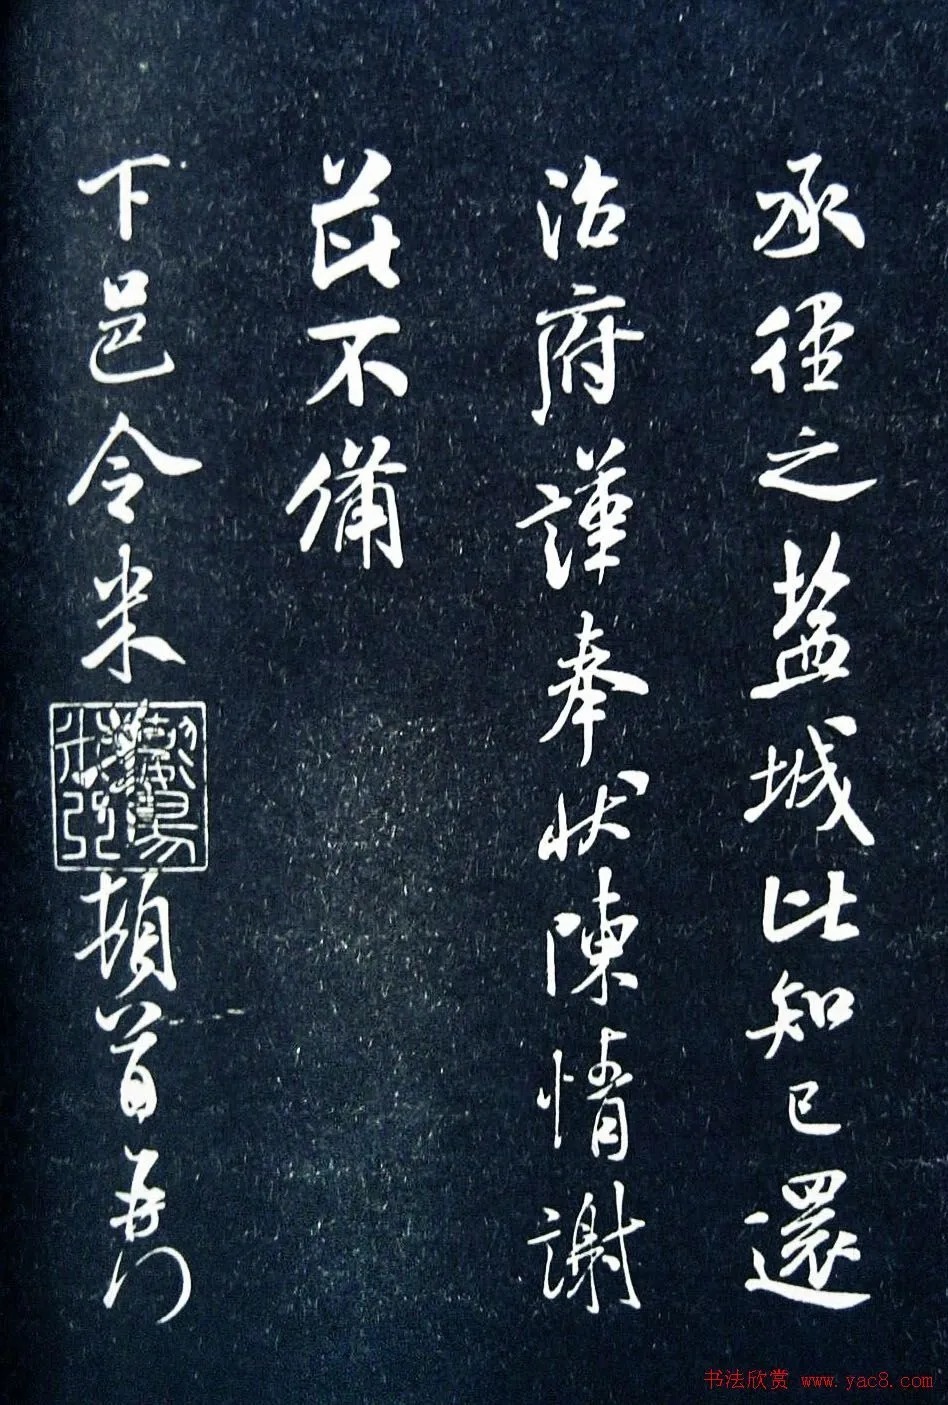 承徑之鹽城比知已還
治府謹奉狀陳情謝
芘不備
下邑令米頓首再拜
书法欣赏 www.yac8.com